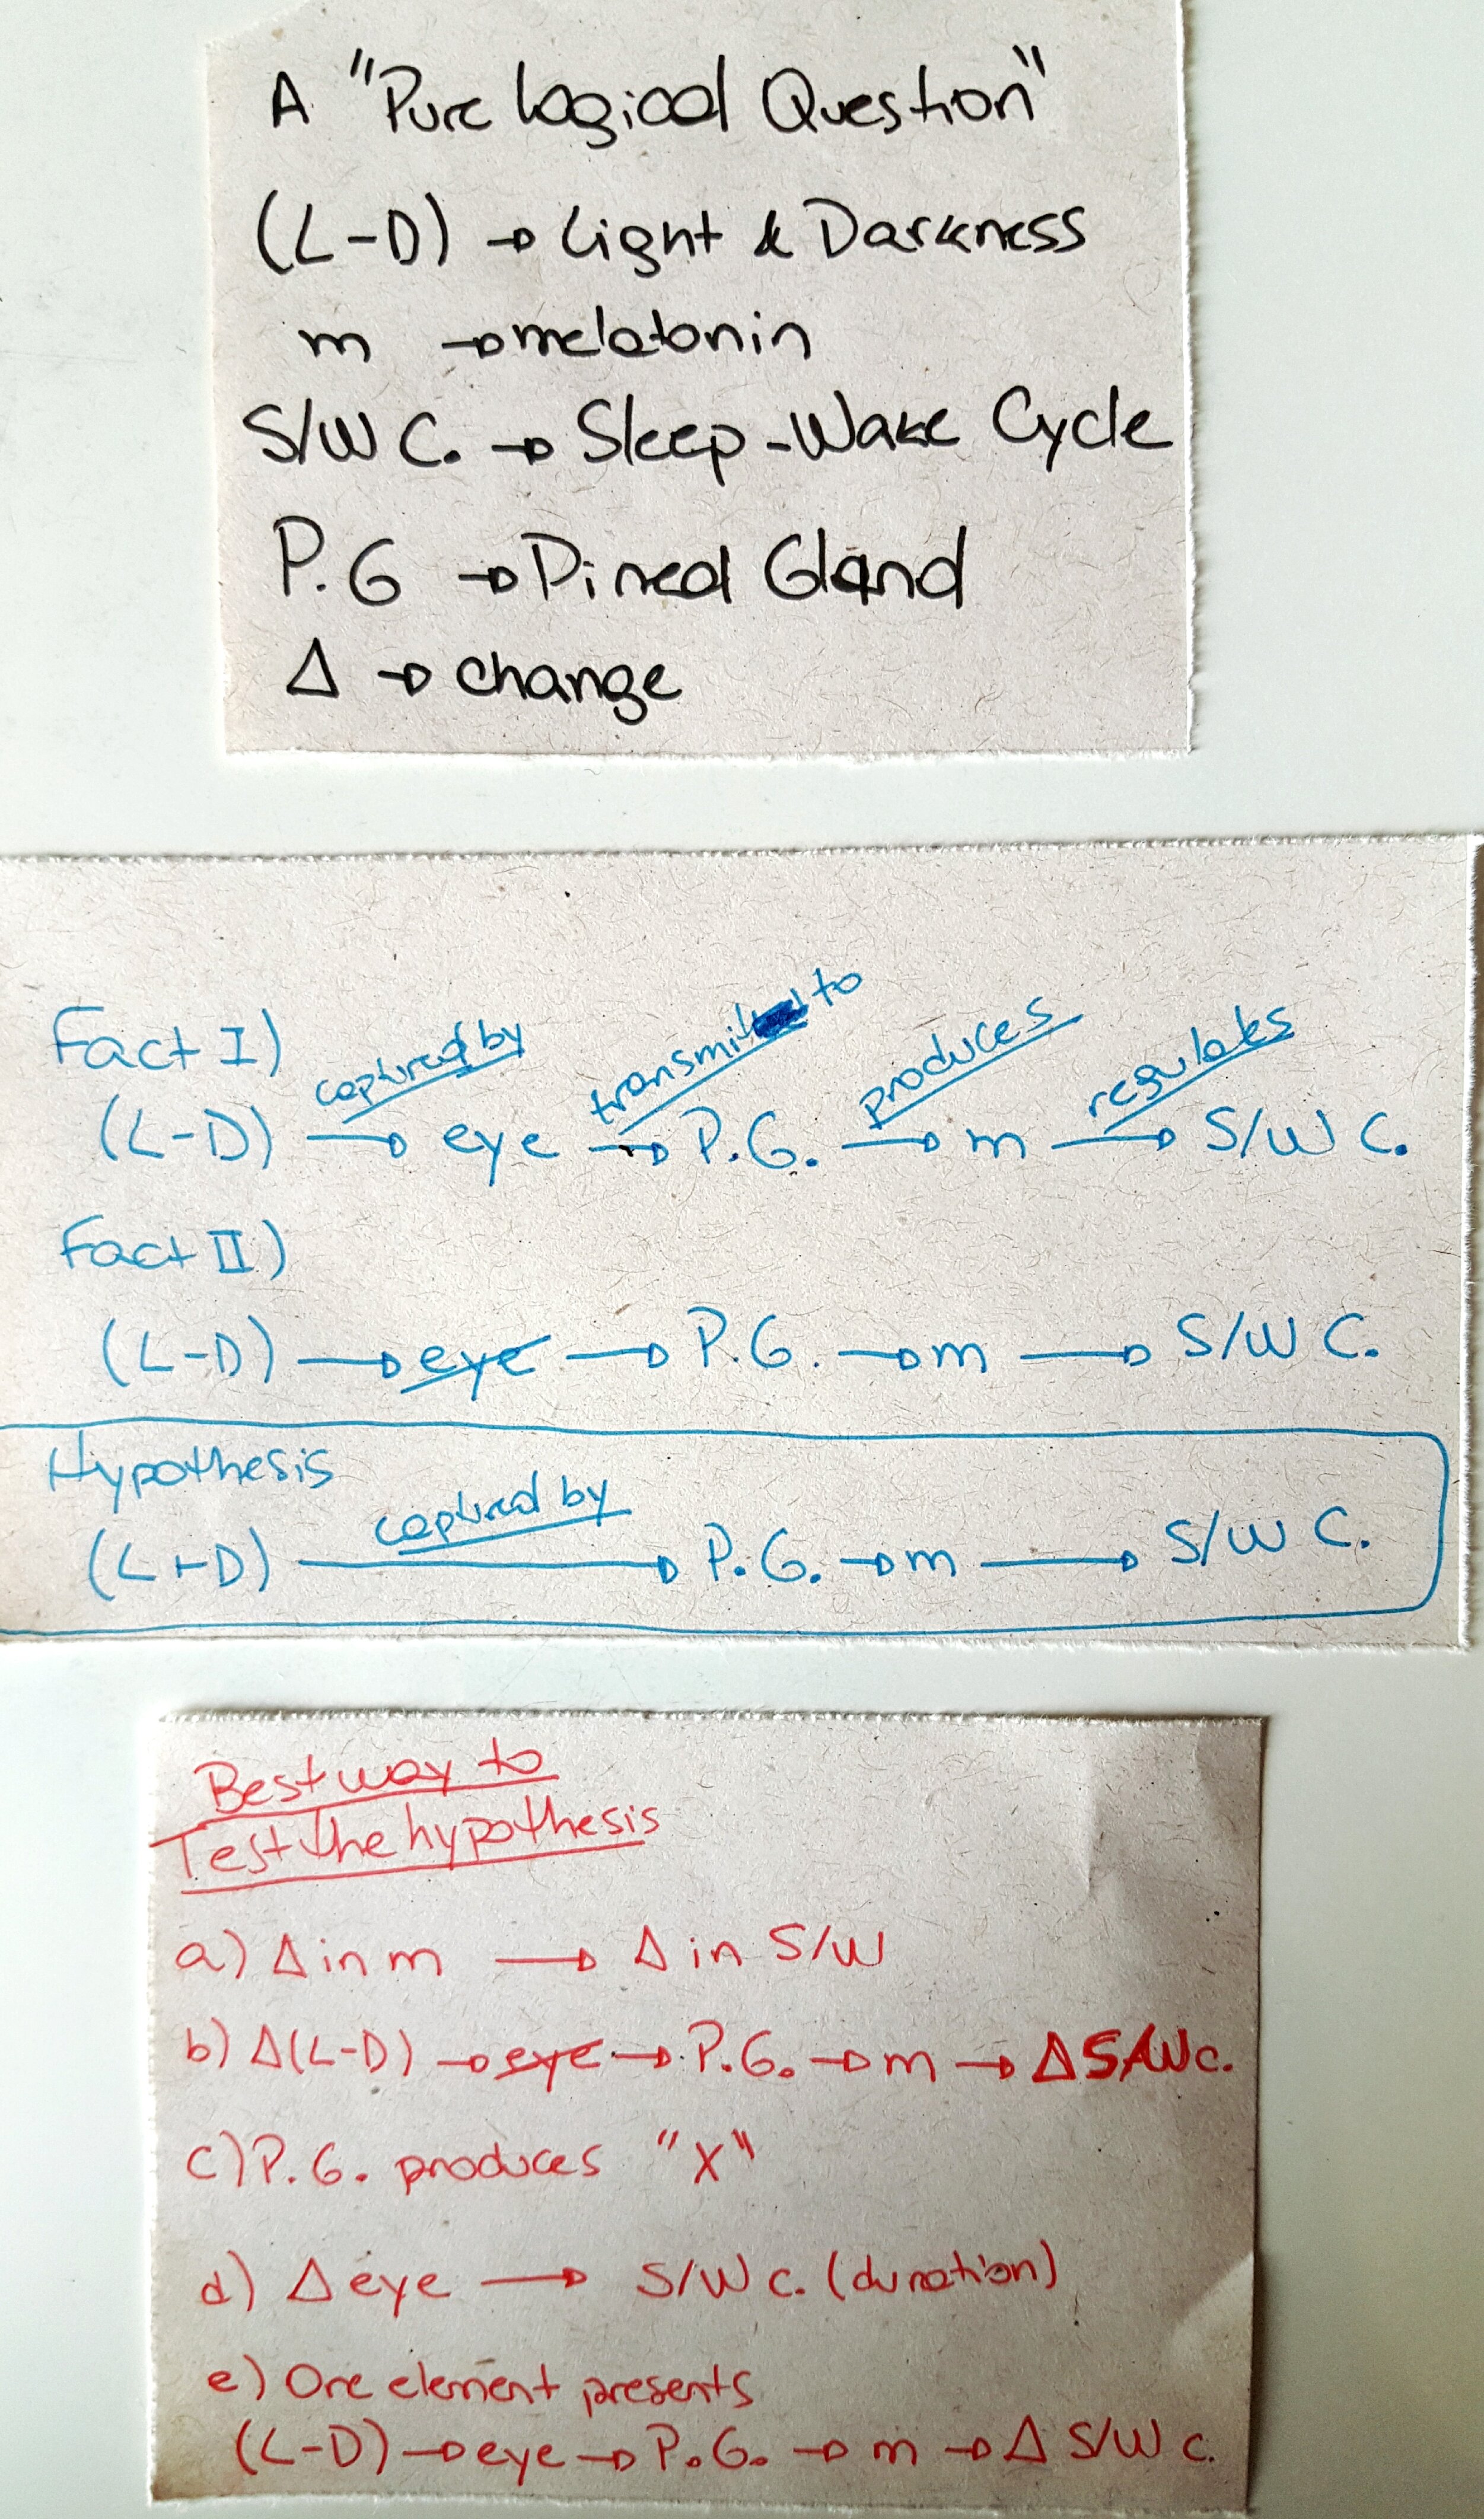 A "Pure Logical Question"
(L-D) → Light & Darkness
m → melatonin
S/W C. → Sleep-Wake Cycle
P.G → Pineal Gland
Δ → change
Fact I)
captured by transmit to produces regulates
(L-D) → eye → P.G. → m → S/W C.
Fact II)
(L-D) → eye → P.G. → m → S/W C.
Hypothesis
captured by
(L-D) → P.G. → m → S/W C.
Best way to
Test the hypothesis
a) Δ in m → Δ in S/W
b) Δ(L-D) → eye → P.G. → m → Δ S/W c.
c) P.G. produces "X"
d) Δ eye → S/W c. (duration)
e) One element presents
(L-D) → eye → P.G. → m → Δ S/W c.